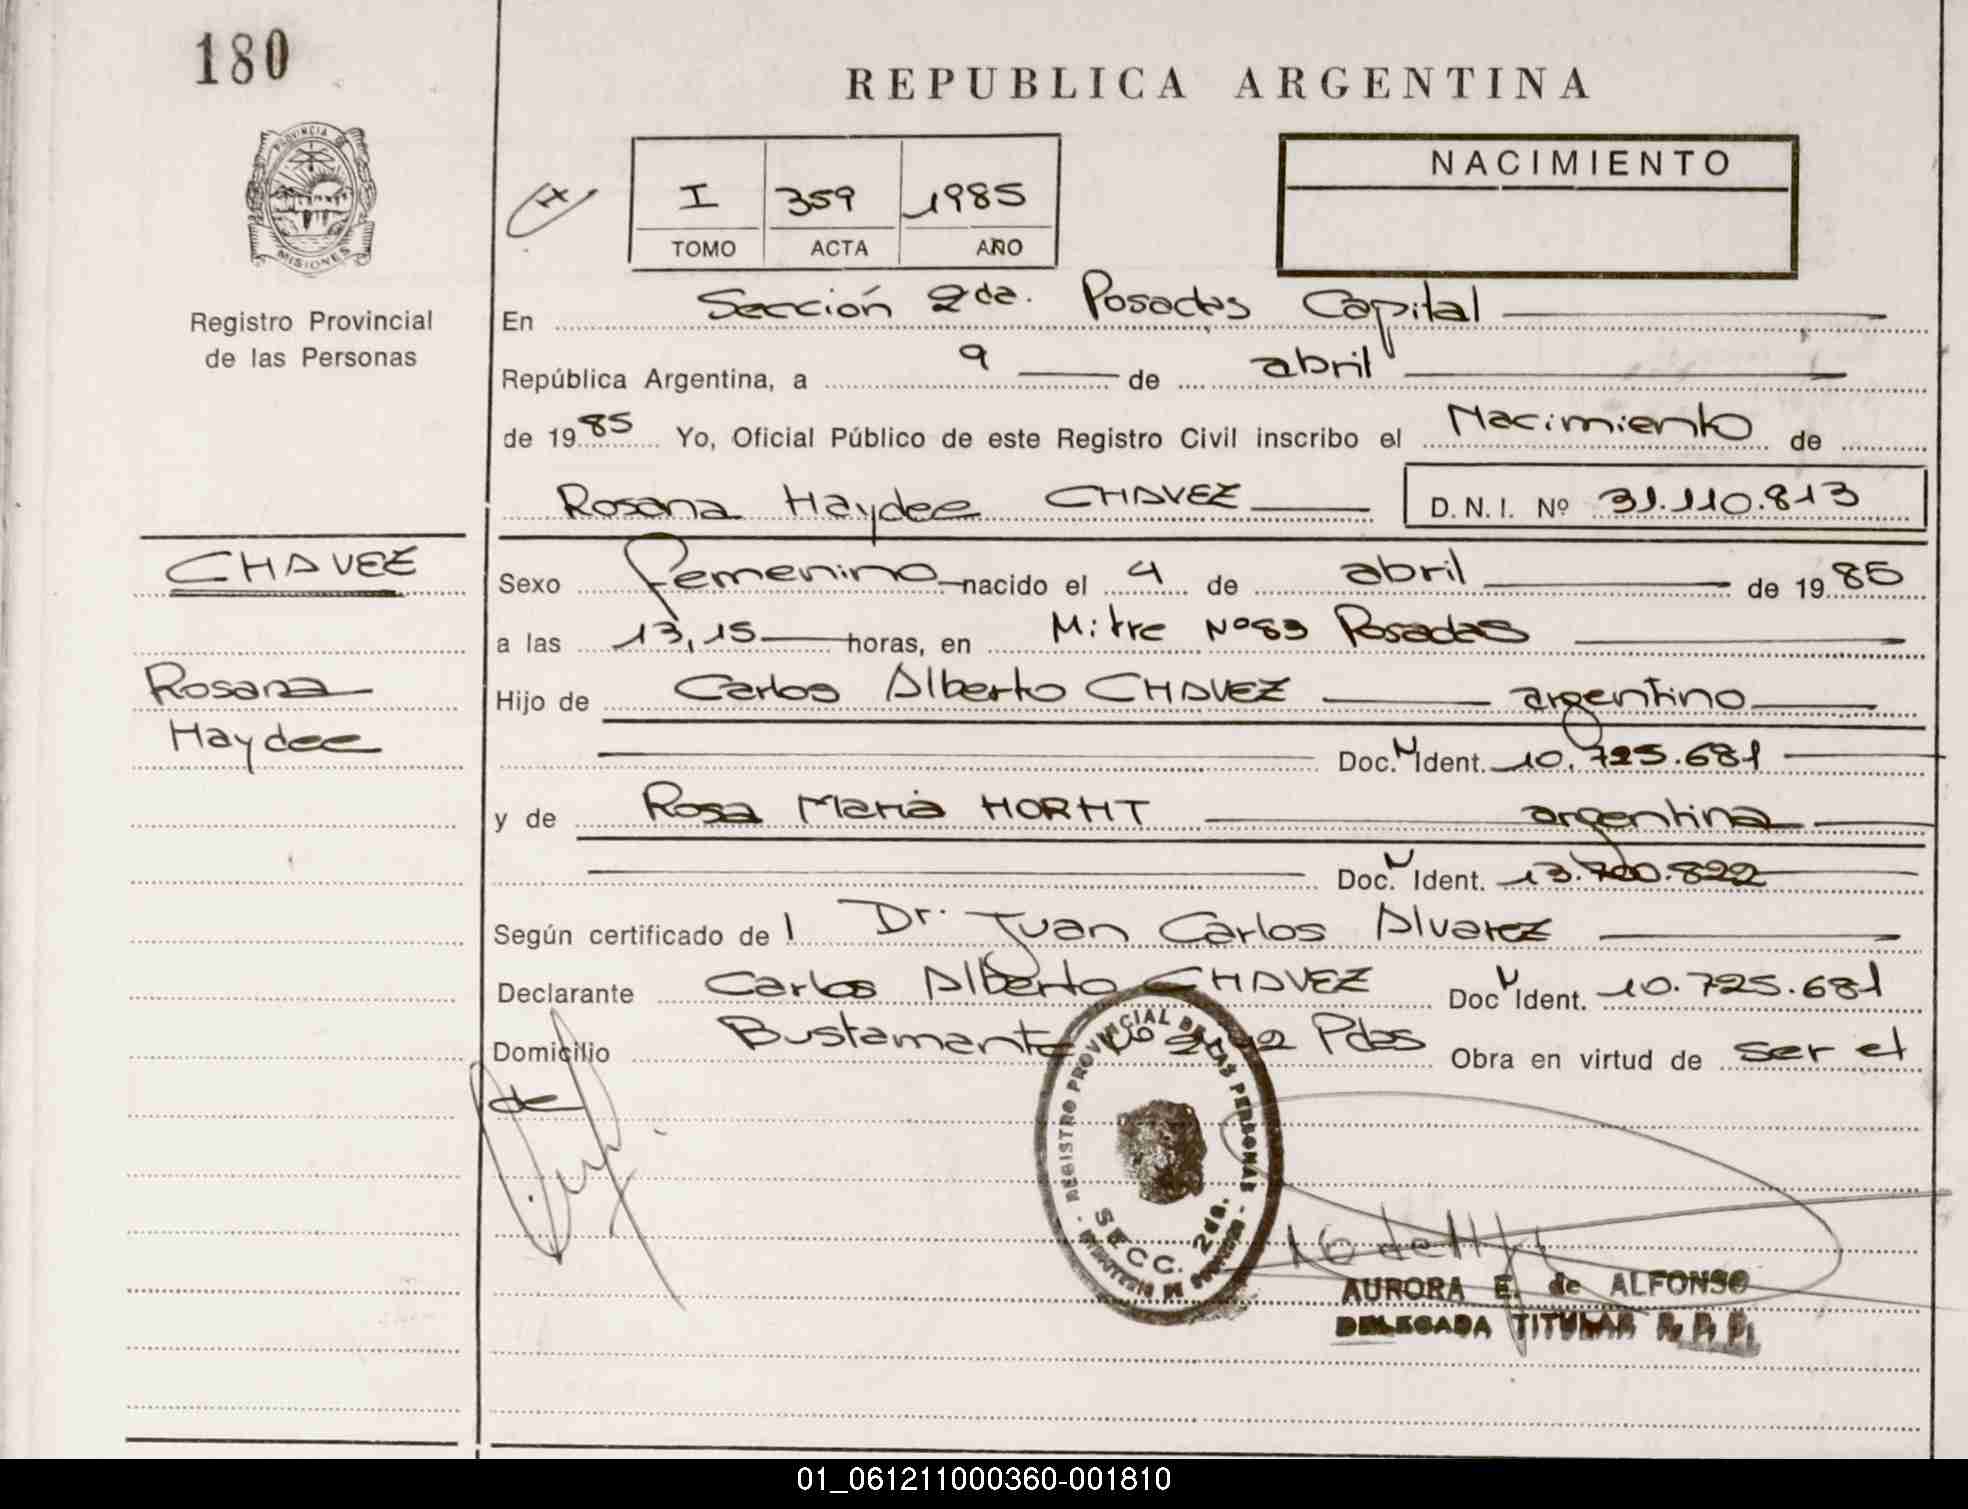 180
REPUBLICA ARGENTINA
PROVINCIA DE
MISIONES
Registro Provincial
de las Personas
I 359 1985
TOMO ACTA AÑO
NACIMIENTO
En Sección 2da. Posadas Capital
República Argentina, a 9 de abril
de 1985 Yo, Oficial Público de este Registro Civil inscribo el Nacimiento de
Rosana Haydee CHAVEZ D.N.I. Nº 31.110.813
CHAVEZ
Rosana
Haydee
Sexo femenino nacido el 4 de abril de 1985
a las 13,15 horas, en Mitre Nº 83 Posadas
Hijo de Carlos Alberto CHAVEZ argentino
Doc. N Ident. 10.725.681
y de Rosa Maria HORHT argentina
Doc. N Ident. 13.700.822
Según certificado de l Dr. Juan Carlos Alvarez
Declarante Carlos Alberto CHAVEZ Doc N Ident. 10.725.681
Domicilio Bustamante Pdas Obra en virtud de ser el
de
REGISTRO PROVINCIAL DE LAS PERSONAS
SECC. 2da.
AURORA E. de ALFONSO
DELEGADA TITULAR R. P. P.
01_061211000360-001810